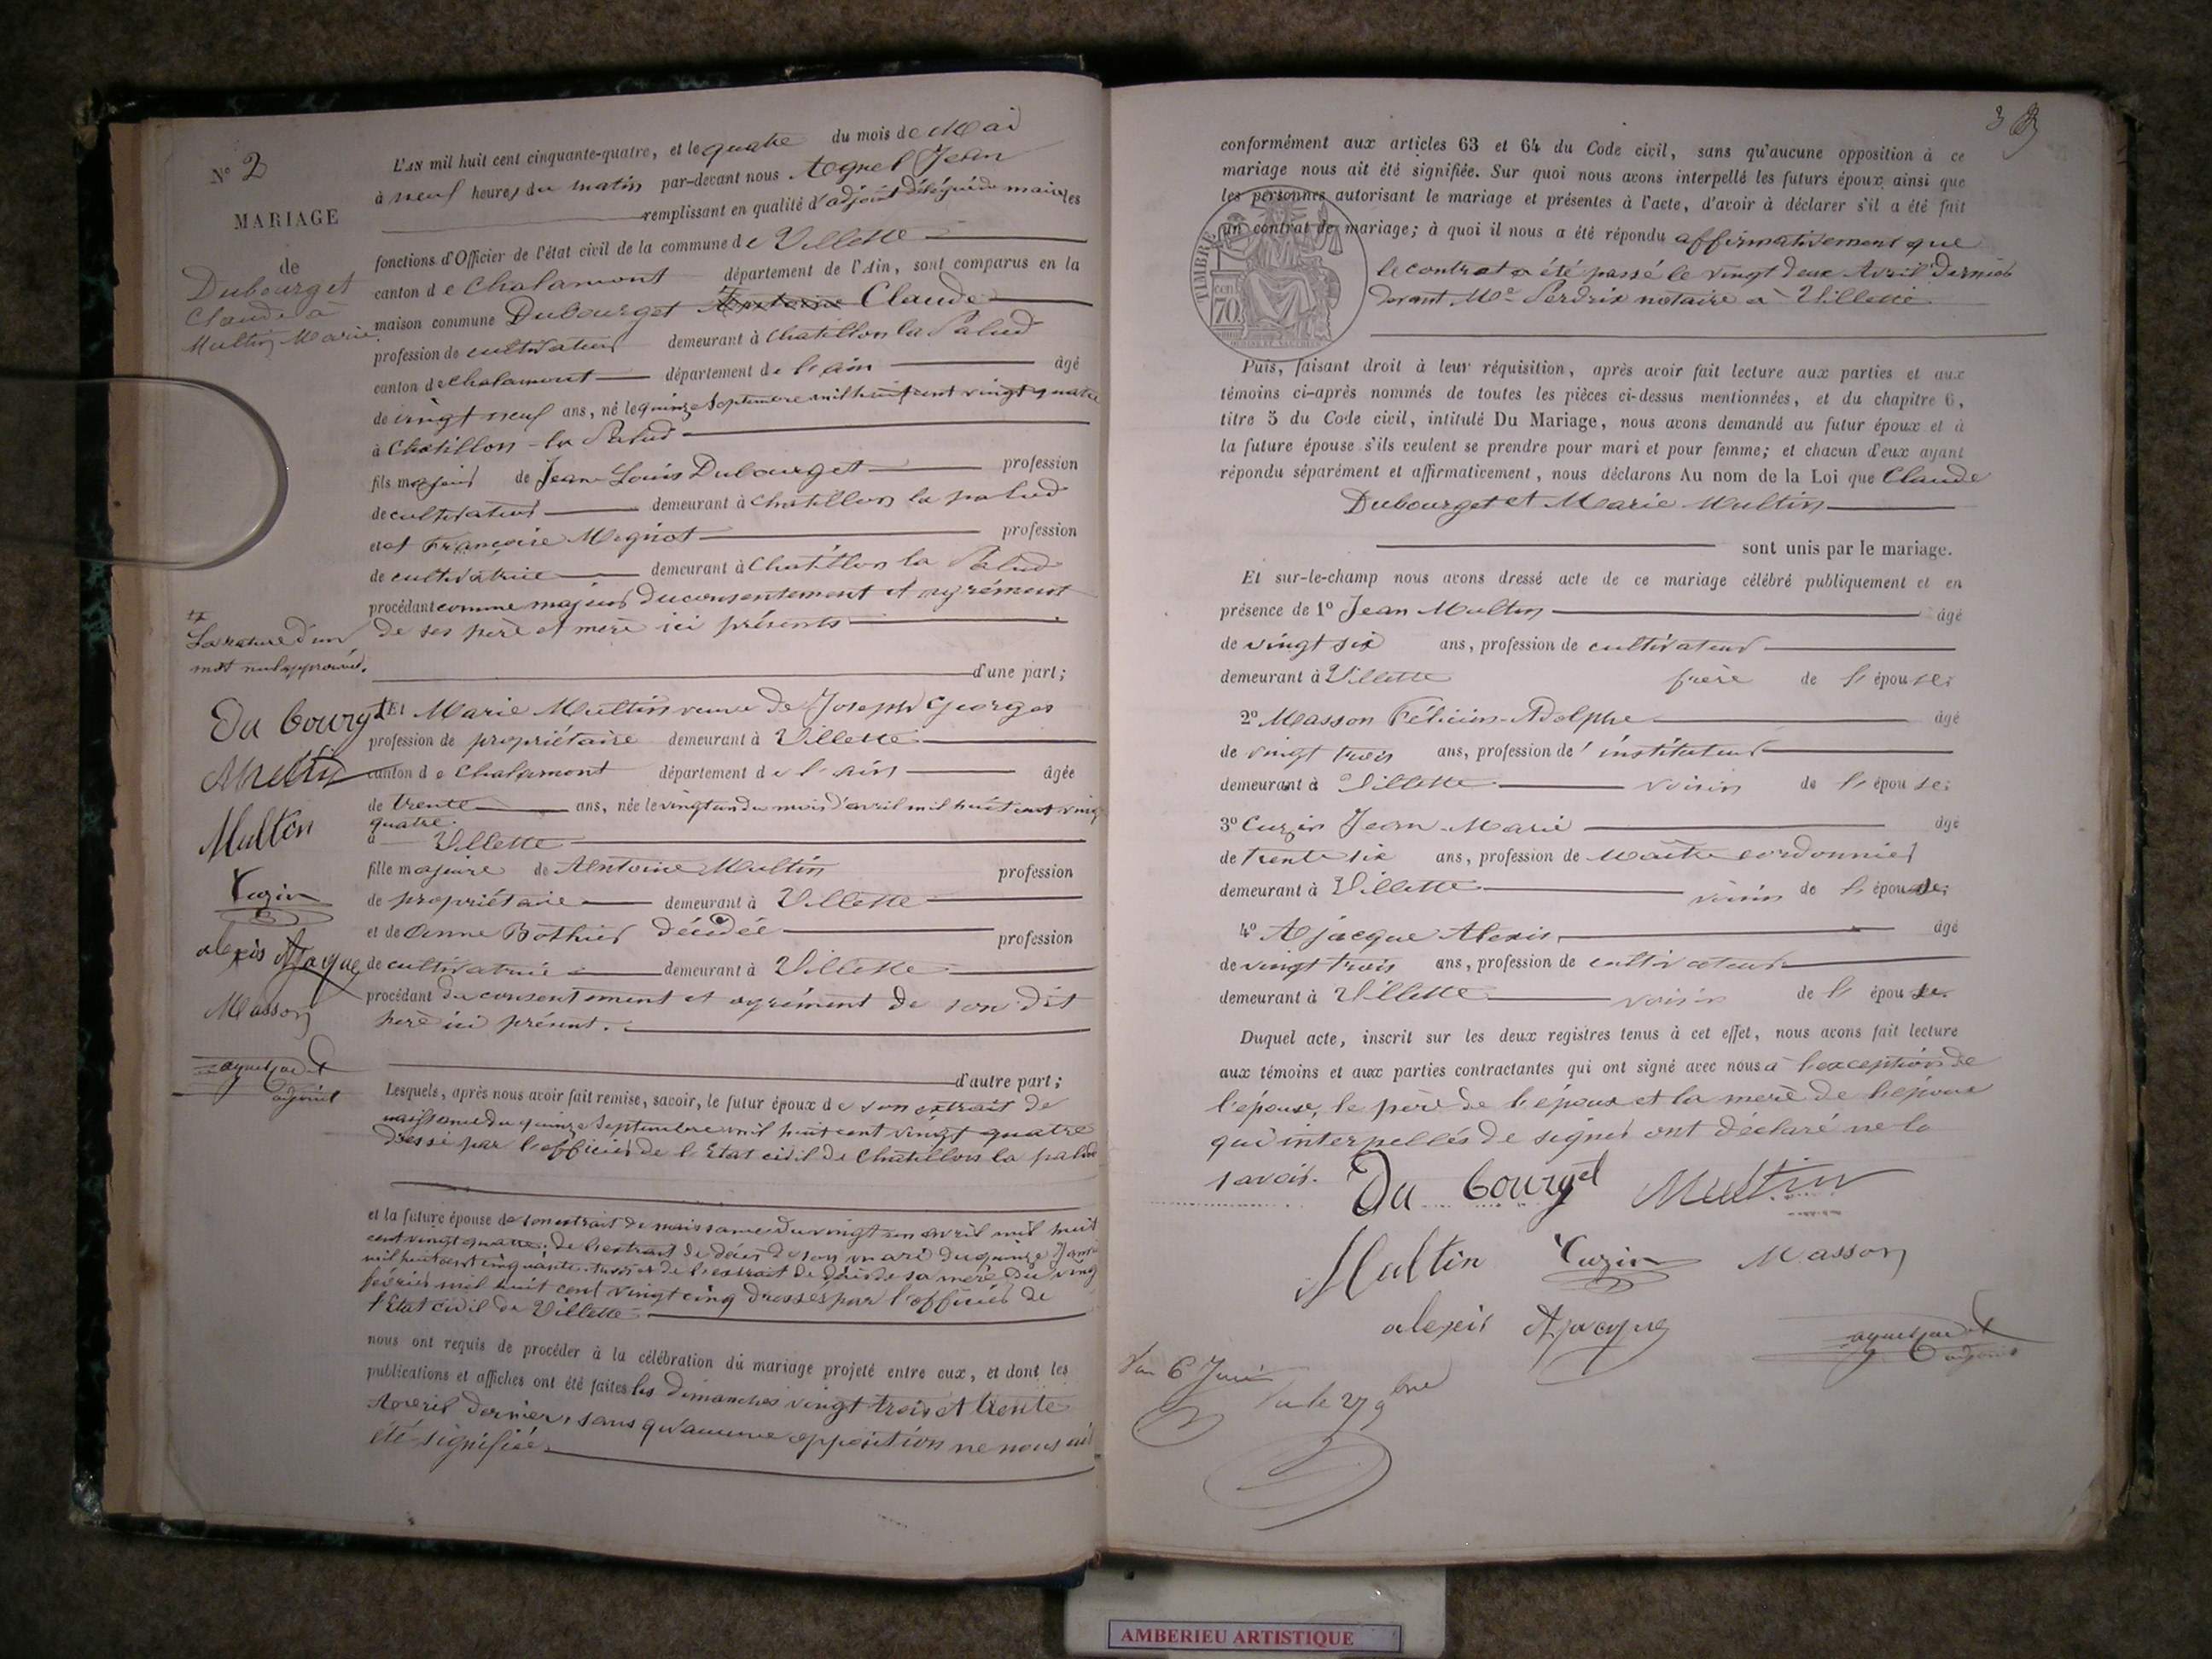 N° 2
MARIAGE
de
Dubourget
Claude à
Multin Marie
L'AN mil huit cent cinquante-quatre, et le quatre du mois de Mai
à neuf heures du matin par-devant nous Jean
remplissant en qualité d'adjoint délégué du maire les
fonctions d'Officier de l'état civil de la commune de Villette
canton de Chalamont département de l'Ain, sont comparus en la
maison commune Dubourget Claude
profession de cultivateur demeurant à Chatillon la Palud
canton de Chalamont département de l'ain âgé
de vingt neuf ans, né le quinze Septembre mil huit cent vingt quatre
à Chatillon-la Palud
fils majeur de Jean Louis Dubourget profession
de cultivateur demeurant à Chatillon la palud
et de Françoise Mignot profession
de cultivatrice demeurant à Chatillon la Palud
procédant comme majeur du consentement et agrément
de ses père et mère ici présents
d'une part;
La rature d'un
mot nul approuvée.
Du bourget
Multin
Multin
Cuzin
alexis Ajacque
Masson
adjoint
Et Marie Multin veuve de Joseph Georges
profession de propriétaire demeurant à Villette
canton de Chalamont département de l'ain âgée
de trente ans, née le vingt un du mois d'avril mil huit cent vingt
quatre
à Villette
fille majeure de Antoine Multin profession
de propriétaire demeurant à Villette
et de Anne Bothier décédée profession
de cultivatrice demeurant à Villette
procédant du consentement et agrément de son dit
père ici présent.
d'autre part;
Lesquels, après nous avoir fait remise, savoir, le futur époux de son extrait de
naissance du quinze Septembre mil huit cent vingt quatre
dressé par l'officier de l'Etat civil de Chatillon la palud
et la future épouse de son extrait de naissance du vingt un avril mil huit
cent vingt quatre; de l'extrait de décès de son mari du quinze
mil huit cent cinquante et de l'extrait de décès de sa mère du vingt
février mil huit cent vingt cinq dressés par l'officier de
l'Etat civil de Villette
nous ont requis de procéder à la célébration du mariage projeté entre eux, et dont les
publications et affiches ont été faites les dimanches vingt trois et trente
Avril dernier, sans qu'aucune opposition ne nous ait
été signifiée
3
conformément aux articles 63 et 64 du Code civil, sans qu'aucune opposition à ce
mariage nous ait été signifiée. Sur quoi nous avons interpellé les futurs époux ainsi que
les personnes autorisant le mariage et présentes à l'acte, d'avoir à déclarer s'il a été fait
un contrat de mariage; à quoi il nous a été répondu affirmativement que
le contrat a été passé le vingt deux Avril dernier
devant Me Perdrix notaire à Villette
TIMBRE
cent
70
Puis, faisant droit à leur réquisition, après avoir fait lecture aux parties et aux
témoins ci-après nommés de toutes les pièces ci-dessus mentionnées, et du chapitre 6,
titre 5 du Code civil, intitulé Du Mariage, nous avons demandé au futur époux et à
la future épouse s'ils veulent se prendre pour mari et pour femme; et chacun d'eux ayant
répondu séparément et affirmativement, nous déclarons Au nom de la Loi que Claude
Dubourget et Marie Multin
sont unis par le mariage.
Et sur-le-champ nous avons dressé acte de ce mariage célébré publiquement et en
présence de 1° Jean Multin âgé
de vingt six ans, profession de cultivateur
demeurant à Villette frère de l'épouse;
2° Masson Félicien-Adolphe âgé
de vingt trois ans, profession d'instituteur
demeurant à Villette voisin de l'épouse;
3° Cuzin Jean-Marie âgé
de trente six ans, profession de Maître cordonnier
demeurant à Villette voisin de l'épouse;
4° Ajacque Alexis, âgé
de vingt trois ans, profession de cultivateur
demeurant à Villette voisin de l'épouse.
Duquel acte, inscrit sur les deux registres tenus à cet effet, nous avons fait lecture
aux témoins et aux parties contractantes qui ont signé avec nous à l'exception de
l'épouse, le père de l'époux et la mère de l'époux
qui interpellés de signer ont déclaré ne le
savoir.
Du bourget Multin
Multin Cuzin Masson
alexis Ajacque
adjoint
6 Juin
Vu le 27
AMBERIEU ARTISTIQUE